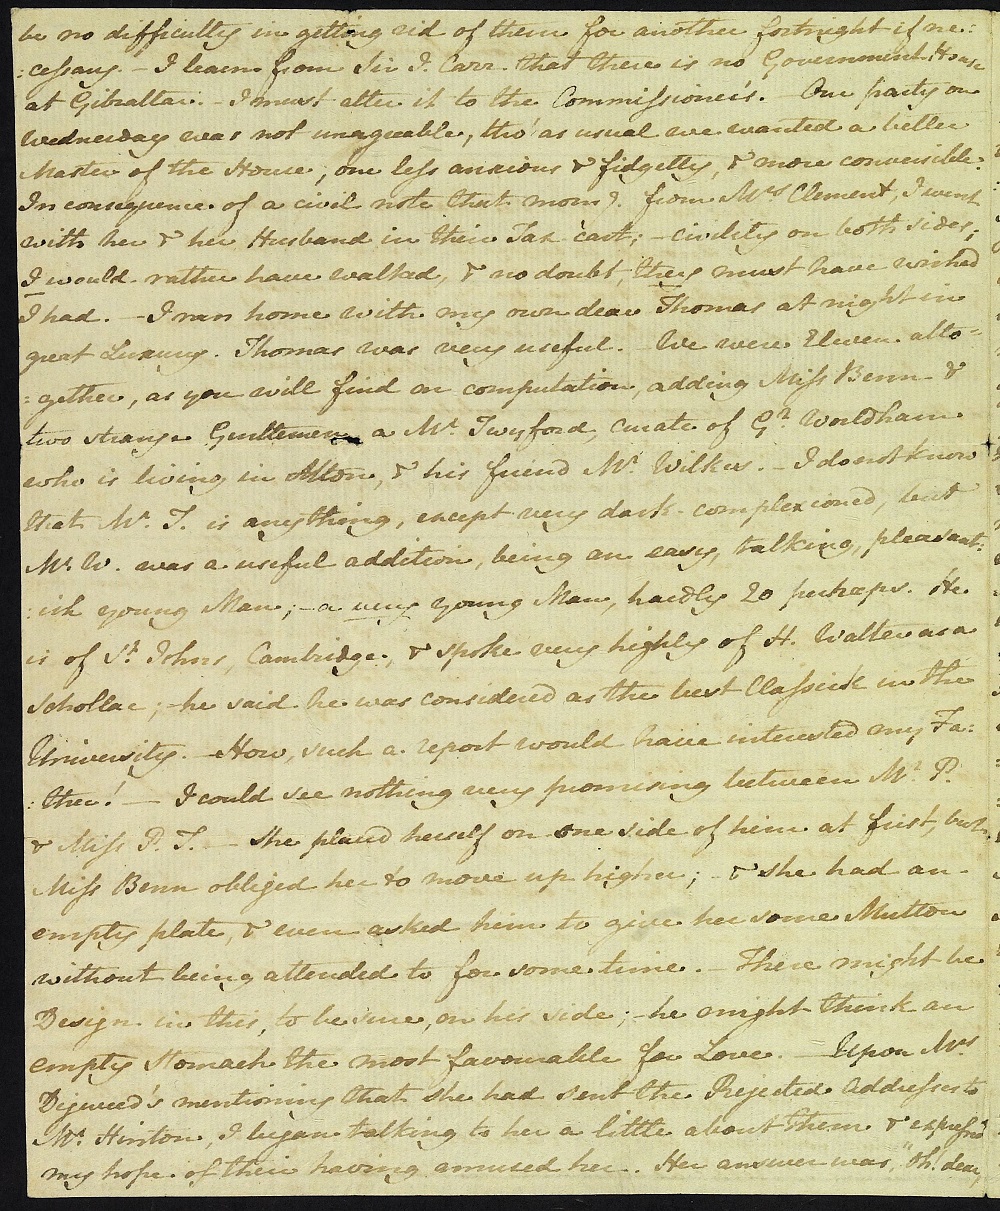 be no difficulty in getting rid of them for another fortnight if ne:
:cessary. – I learn from Sir J. Carr that there is no Government House
at Gibraltar. – I must alter it to the Commissioner's. Our party on
Wednesday was not unagreable, tho' as usual we wanted a better
Master of the House, one less anxious & fidgetty, & more conversible.
In consequence of a civil note that morng. from Mrs Clement, I went
with her & her Husband in their Tax cart; – civility on both sides;
I would rather have walked, & no doubt, they must have wished
I had. – I ran home with my own dear Thomas at night in
great Luxury. Thomas was very useful. – We were Eleven alto=
=gether, as you will find on computation, adding Miss Benn &
two strange Gentlemen, a Mr. Twyford, curate of Gt. Worldham
who is living in Alton, & his friend Mr. Wilkes. – I do not know
that Mr. T. is anything, except very dark-complexioned, but
Mr. W. was a useful addition, being an easy, talking, pleasant:
:ish young Man; – a very young Man, hardly 20 perhaps. He
is of St. Johns, Cambridge, & spoke very highly of H. Walter as a
Schollar; – he said he was considered as the best Classick in the
University. – How, such a report would have interested my Fa:
:ther! – I could see nothing very promising between Mr. P.
& Miss P. T. – She placed herself on one side of him at first, but
Miss Benn obliged her to move up higher; – & she had an
empty plate, & even asked him to give her some Mutton
without being attended to for some time. – There might be
Design in this, to be sure, on his side; – he might think an
empty Stomach the most favourable for Love. – Upon Mrs
Digweed's mentioning that she had sent the Rejected Addresses to
Mr. Hinton, I began talking to her a little about them & express'd
my hope of their having amused her. Her answer was, "Oh! dear,